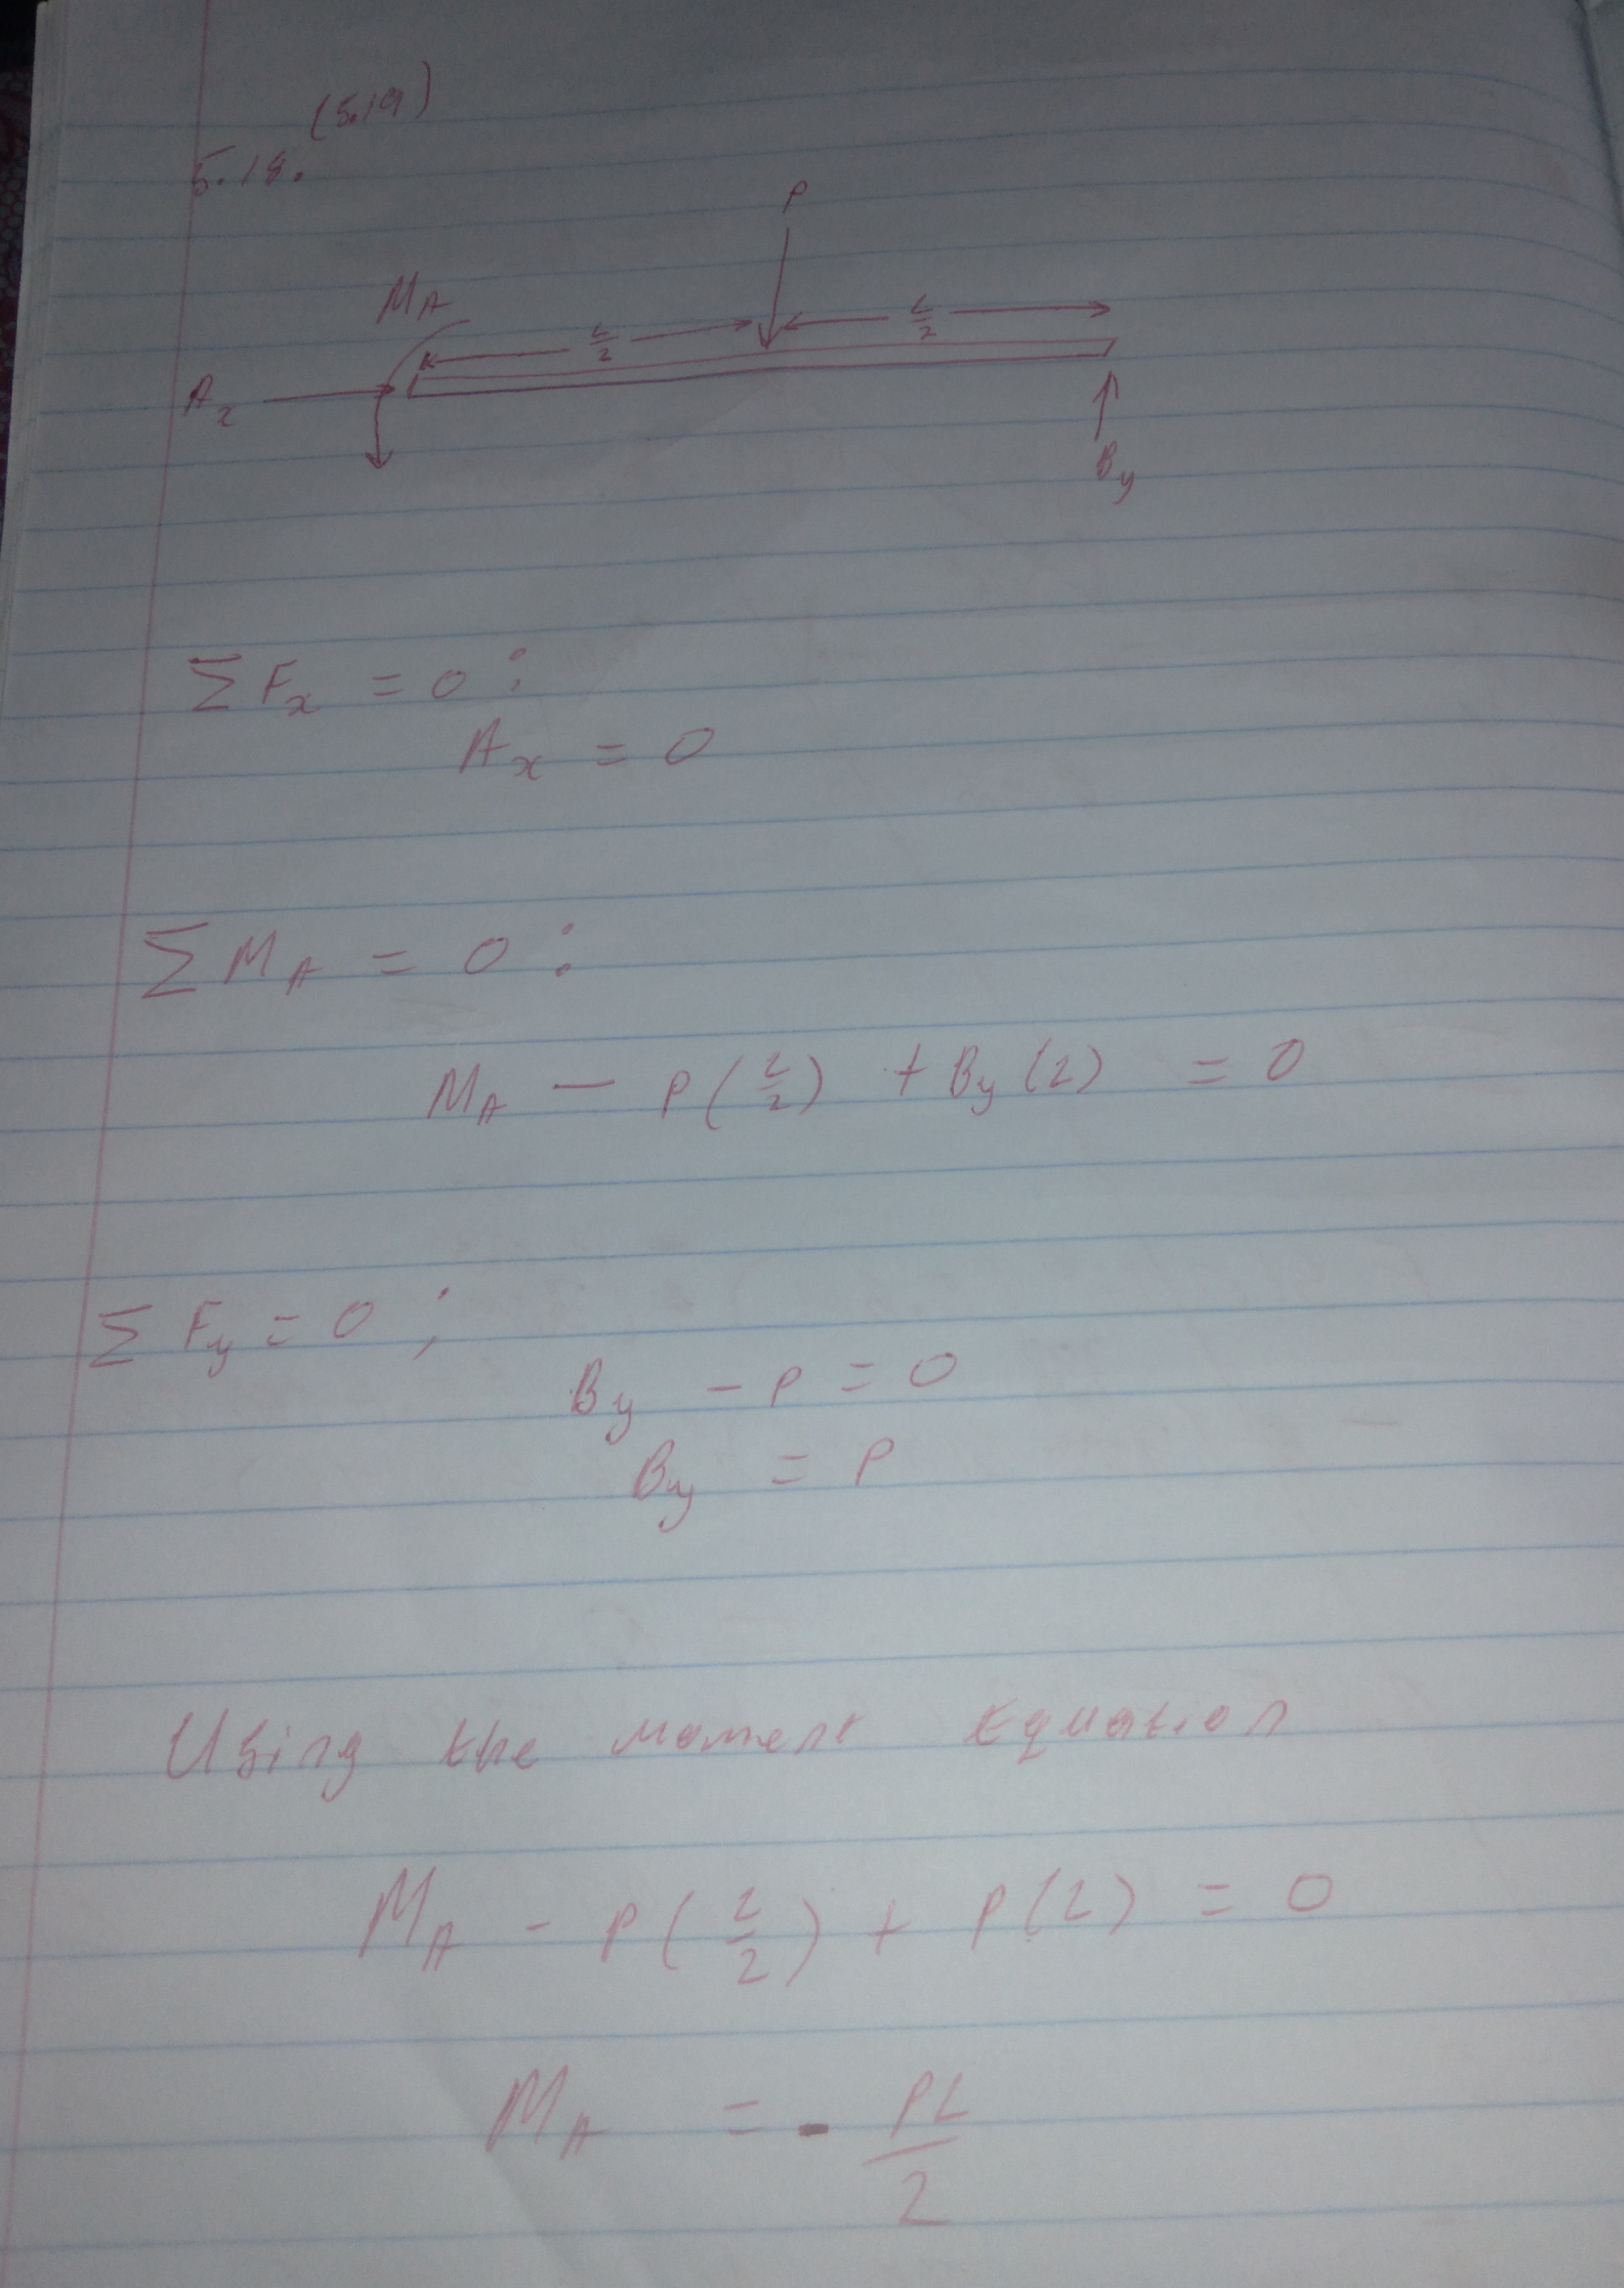 (5.19)
5.18.
P
M_A
L/2
L/2
A_x
B_y
ΣF_x = 0 ;
A_x = 0
ΣM_A = 0 :
M_A - P(L/2) + B_y(L) = 0
ΣF_y = 0 ;
B_y - P = 0
B_y = P
Using the Moment Equation
M_A - P(L/2) + P(L) = 0
M_A = - PL/2